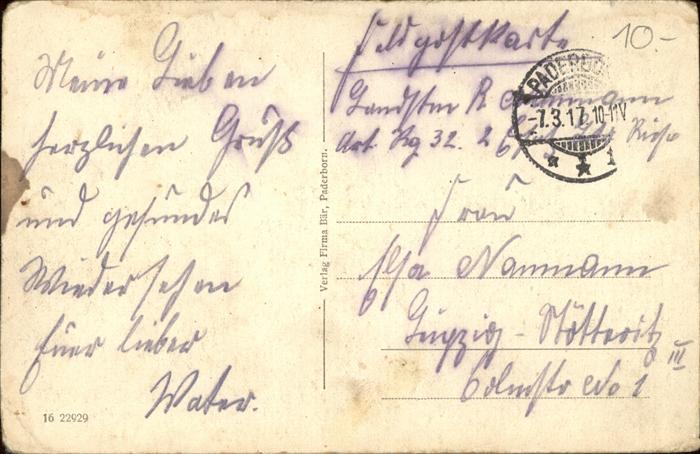 Meine Lieben
herzlichen Gruß
und gesundes
Wiedersehen
Euer lieber
Vater.
16 22929
Verlag Firma Bär, Paderborn.
Feldpostkarte
10.-
PADERBO
-7.3.17. 10-11V
* * 1
Landstm R. Naumann
Art. Rg 32. 2
Frau
Elsa Naumann
Leipzig - Stötteritz
Colmstr No 1 III